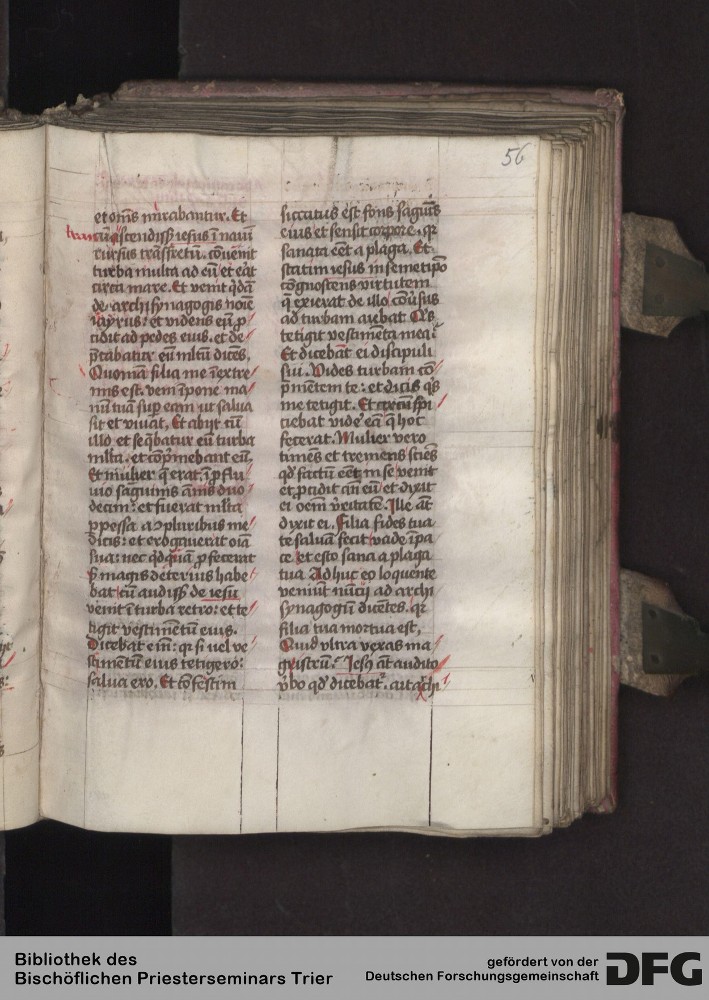 56
et om̄s mirabantur. Et
cū ascendiss̄ iesus ī nauī
rursus trāsfretū. cōuēnit
turba multa ad eū et erāt
circa mare. Et venit q̄dā
de archisynagogis noīe
iayrus: et videns eū p̄
cidit ad pedes eius. et de
p̄cabatur eū mltū dicēs.
Quoniā filia mea ī extre
mis est. veni īpone ma
nū tuā sup̄ eam ut salua
sit et viuat. Et abijt cū
illo et seq̄batur eū turba
mlta. et cōp̄mebant eū.
Et mulier q̄ erat ī p̄flu
uio sāguinis ānis duo
decim: et fuerat mlta
ꝑpessa a cōpluribus me
dicis: et erogauerat oīa
sua: nec qdquā ꝓfecerat
s̄ magis deterius habe
bat cū audiss̄ de iesu
venit ī turba retro: et te
tigit vestimētū eius.
Dicebat em̄: q̄ si uel ve
stimētū eius tetigero:
salua ero. Et cōfestim
siccatus est fons sāguīs
eius et sensit corpore. qr
sanata eēt a plaga. Et
statim iesus in semetip̄o
cōgnoscens virtutem
q̄ exierat de illo cōūsus
ad turbam aiebat. Qīs
tetigit vestimēta mea?
Et dicebāt ei discipuli
sui. Vides turbam cō
p̄mēntem te: et dicis q̄s
me tetigit. Et circūspi
ciebat videre eā q̄ hoc
fecerat. Mulier vero
timēs et tremens sciēs
qd factū eēt in se venit
et ꝓcidit an̄ eū et dixit
ei oem̄ veritatē. Ille āt
dixit ei. Filia fides tua
te saluā fecit vade ī pa
ce et esto sana a plaga
tua Adhuc eo loquente
veniūt nūcij ad archi
synagogū dicētes. qr
filia tua mortua est.
Quid vltra vexas ma
gistrū? Iesꝯ āt audito
v̄bo qd dicebat. ait archi
Bibliothek des
Bischöflichen Priesterseminars Trier
gefördert von der
Deutschen Forschungsgemeinschaft
DFG